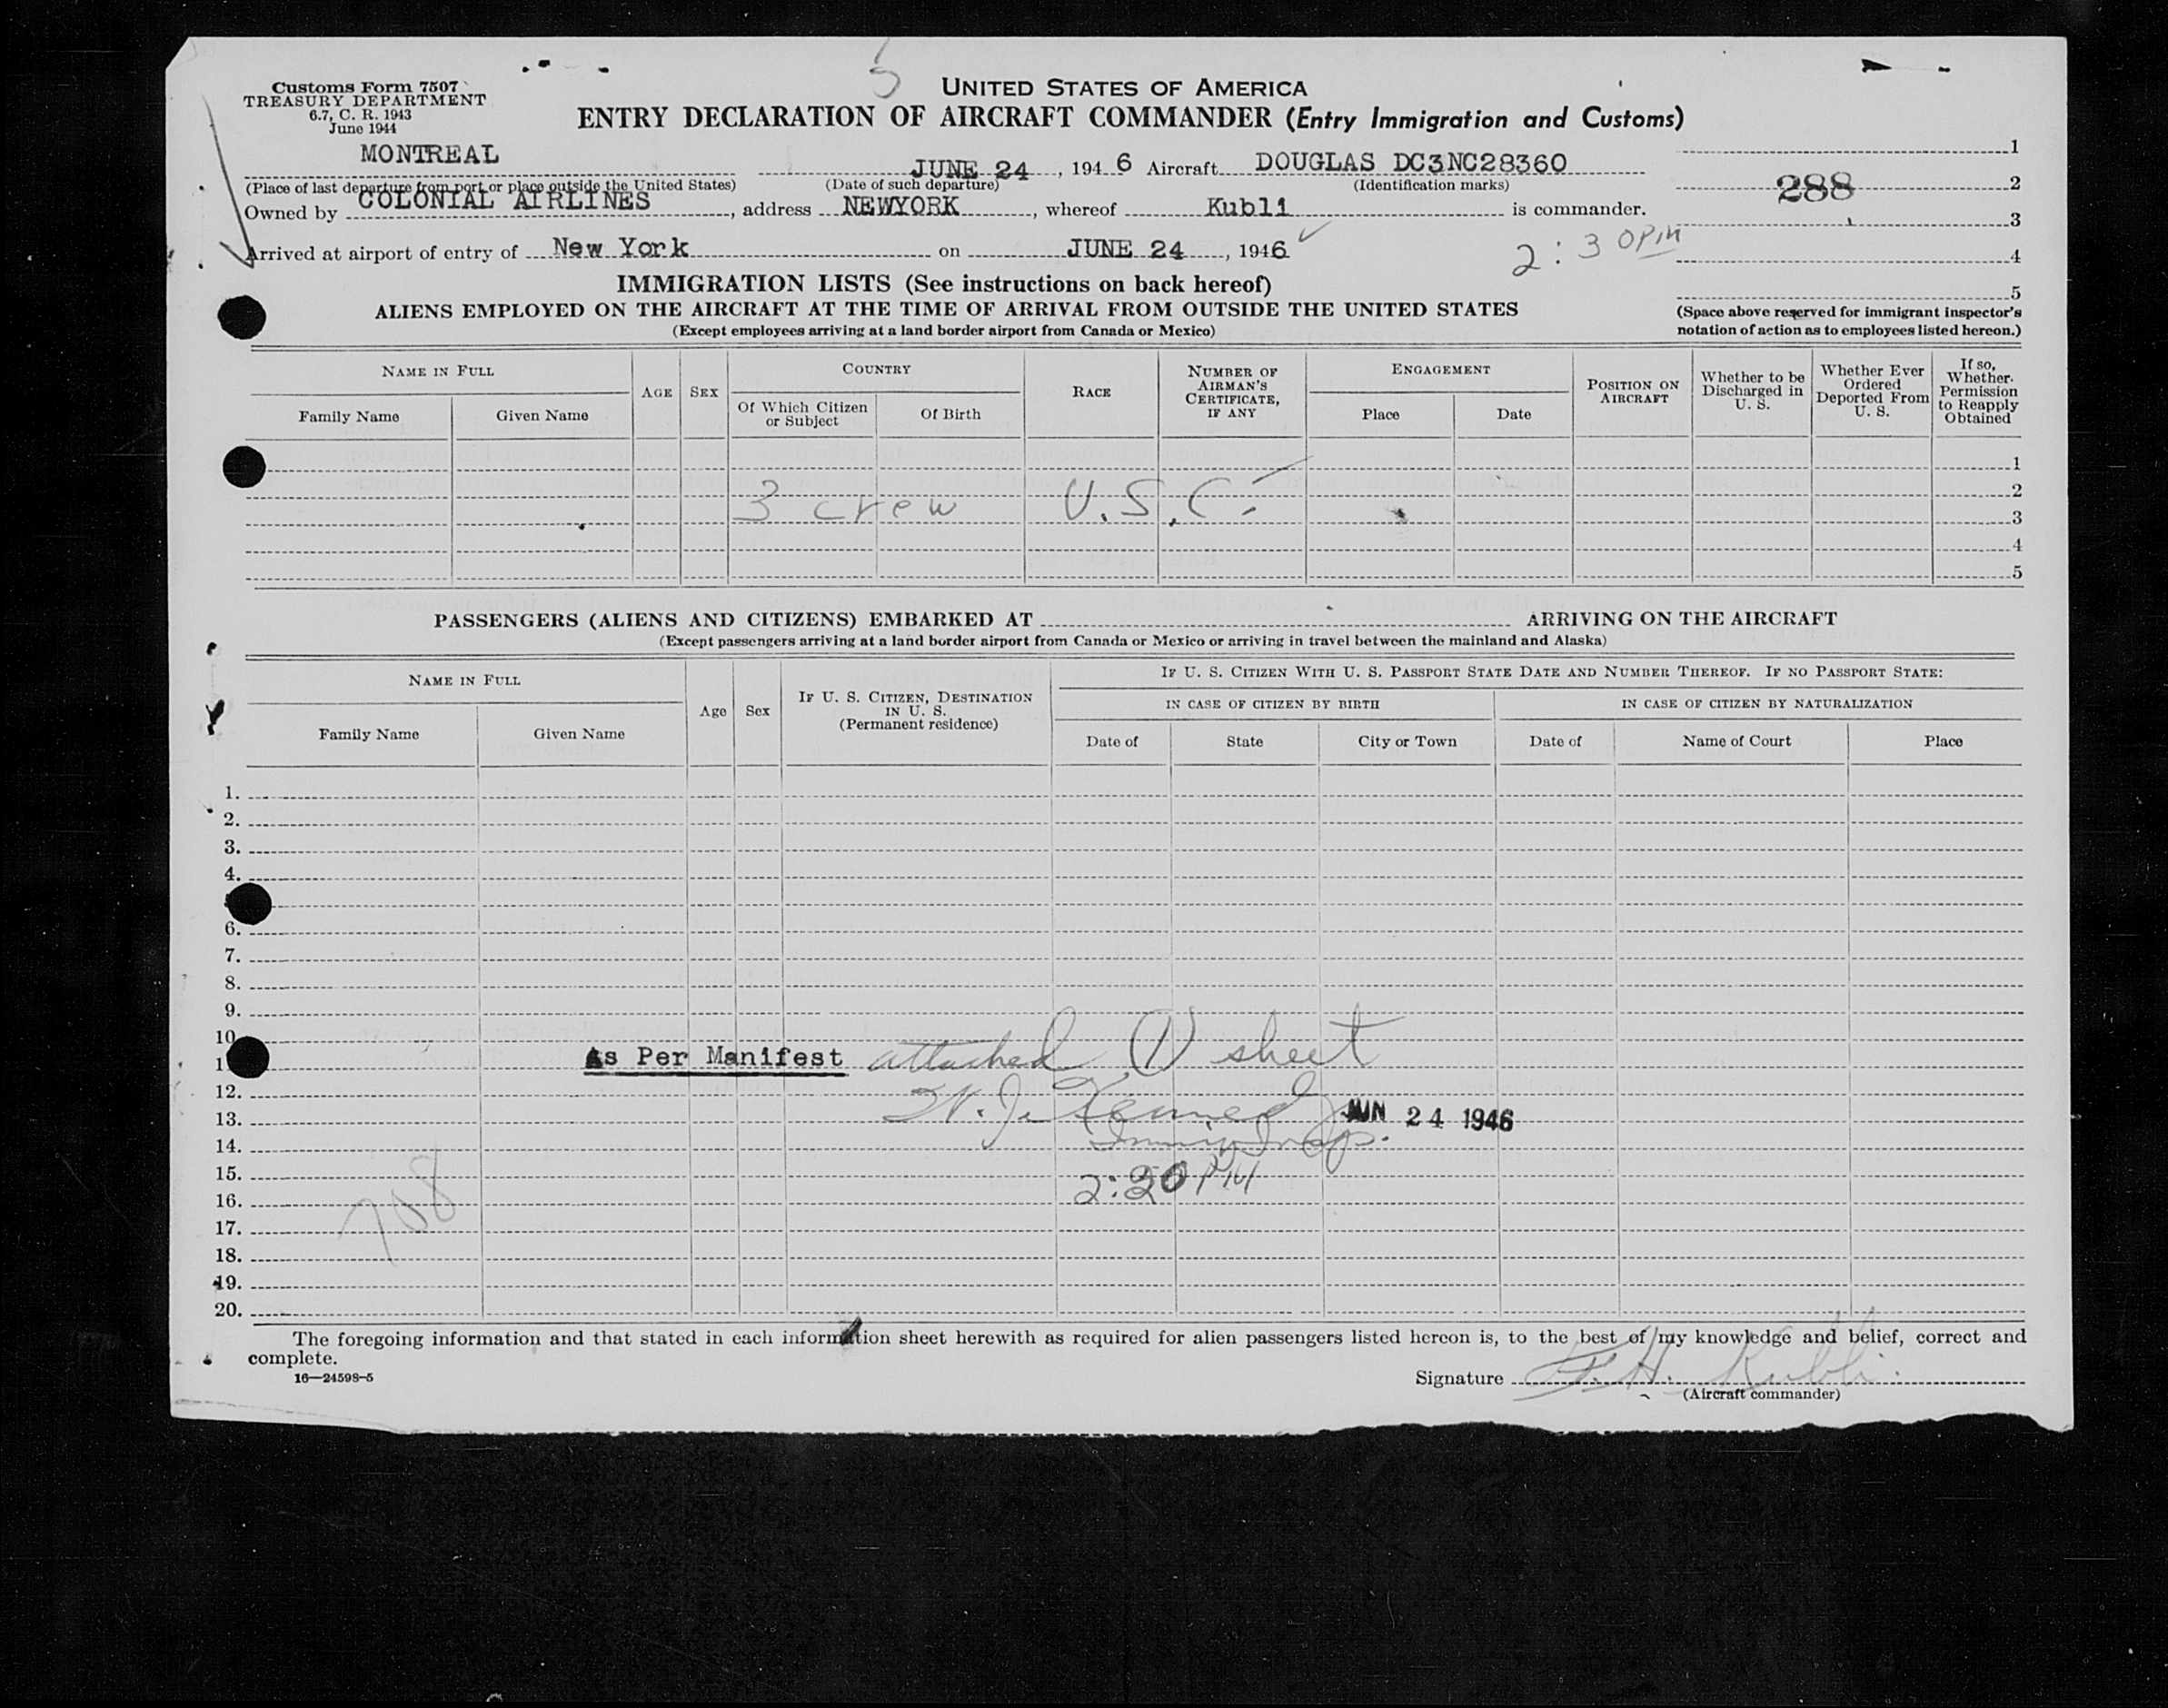 5
Customs Form 7507
TREASURY DEPARTMENT
6.7, C. R. 1943
June 1944
UNITED STATES OF AMERICA
ENTRY DECLARATION OF AIRCRAFT COMMANDER (Entry Immigration and Customs)
MONTREAL JUNE 24, 1946 Aircraft DOUGLAS DC3NC28360 1
(Place of last departure from port or place outside the United States) (Date of such departure) (Identification marks)
288 2
Owned by COLONIAL AIRLINES, address NEWYORK, whereof Kubli is commander.
3
2:30PM
Arrived at airport of entry of New York on JUNE 24, 1946 4
5
IMMIGRATION LISTS (See instructions on back hereof)
ALIENS EMPLOYED ON THE AIRCRAFT AT THE TIME OF ARRIVAL FROM OUTSIDE THE UNITED STATES
(Except employees arriving at a land border airport from Canada or Mexico)
(Space above reserved for immigrant inspector's
notation of action as to employees listed hereon.)
NAME IN FULL
Family Name Given Name
AGE
SEX
COUNTRY
Of Which Citizen
or Subject
Of Birth
RACE
NUMBER OF
AIRMAN'S
CERTIFICATE,
IF ANY
ENGAGEMENT
Place Date
POSITION ON
AIRCRAFT
Whether to be
Discharged in
U. S.
Whether Ever
Ordered
Deported From
U. S.
If so,
Whether
Permission
to Reapply
Obtained
1
2
3 crew U.S.C.
3
4
5
PASSENGERS (ALIENS AND CITIZENS) EMBARKED AT ARRIVING ON THE AIRCRAFT
(Except passengers arriving at a land border airport from Canada or Mexico or arriving in travel between the mainland and Alaska)
NAME IN FULL
Family Name Given Name
Age
Sex
IF U. S. CITIZEN, DESTINATION
IN U. S.
(Permanent residence)
IF U. S. CITIZEN WITH U. S. PASSPORT STATE DATE AND NUMBER THEREOF. IF NO PASSPORT STATE:
IN CASE OF CITIZEN BY BIRTH
IN CASE OF CITIZEN BY NATURALIZATION
Date of State City or Town Date of Name of Court Place
1.
2.
3.
4.
6.
7.
8.
9.
10
As Per Manifest attached (1) sheet
12.
13. Kennedy JUN 24 1946
14. Immig Insp.
15. 2:20 PM
16.
708
17.
18.
19.
20.
The foregoing information and that stated in each information sheet herewith as required for alien passengers listed hereon is, to the best of my knowledge and belief, correct and
complete.
16—24598-5
Signature F. H. Kubli
(Aircraft commander)